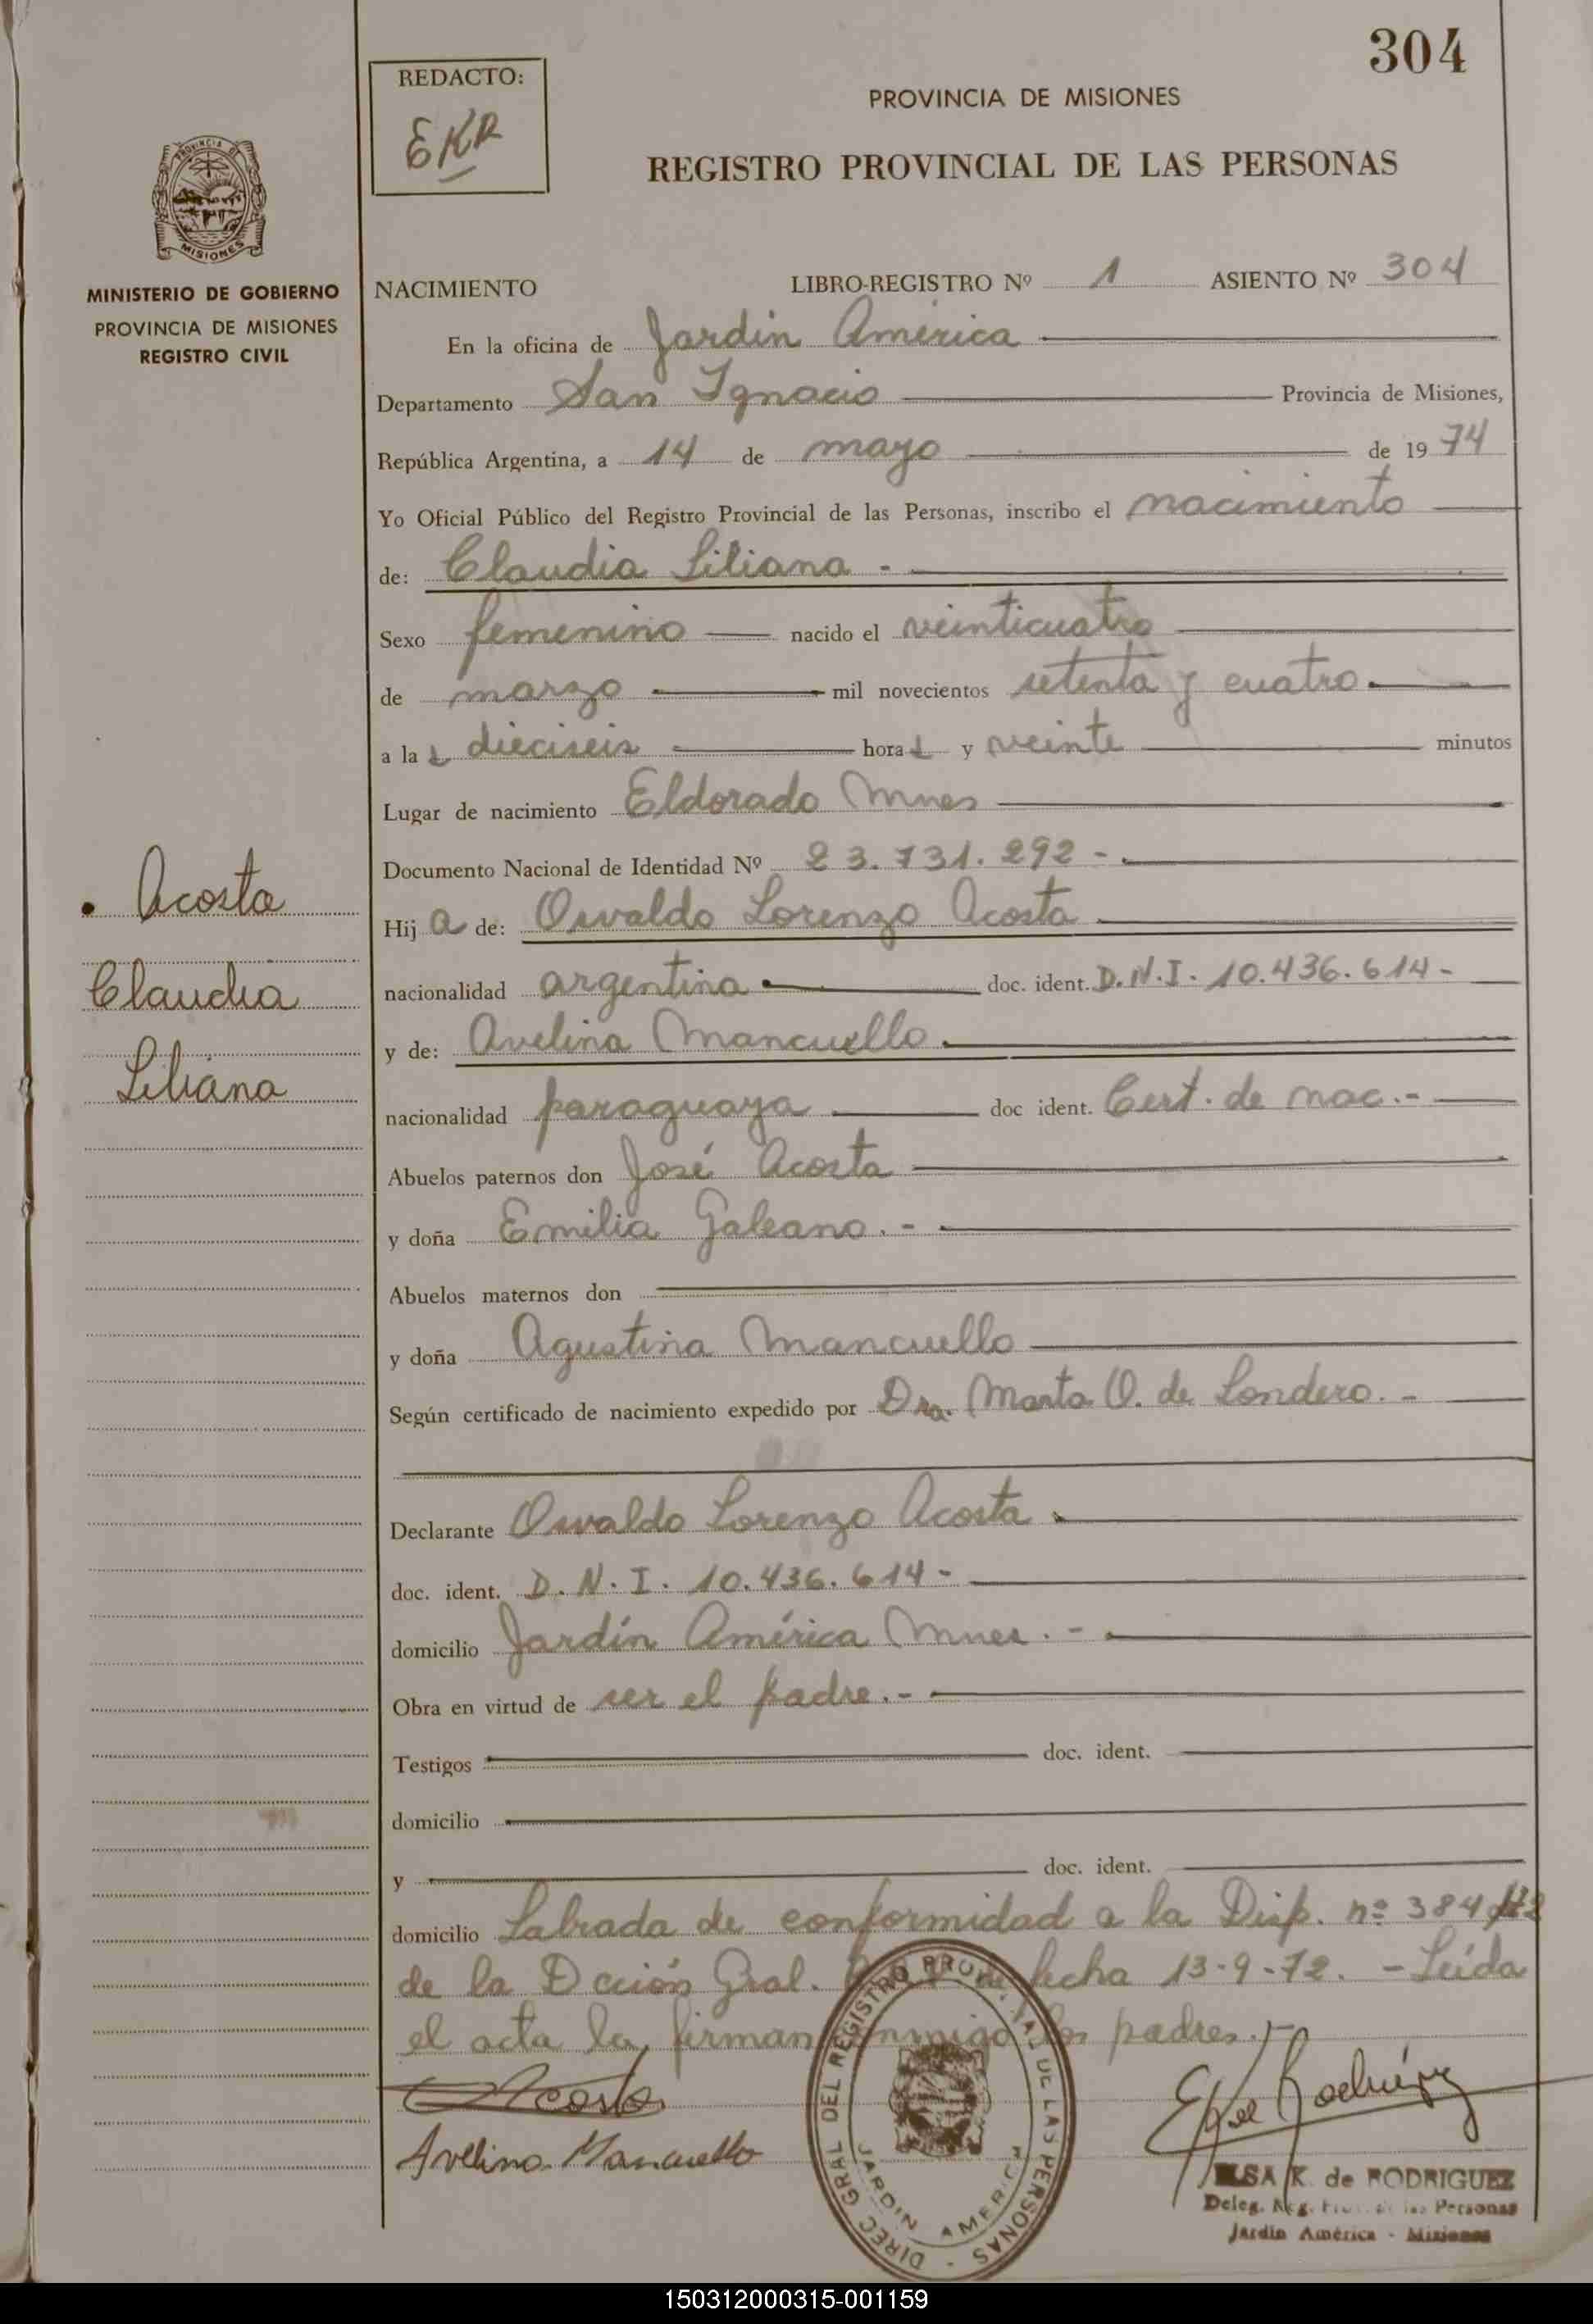 304
REDACTO:
EKR
PROVINCIA DE MISIONES
REGISTRO PROVINCIAL DE LAS PERSONAS
PROVINCIA DE
MISIONES
MINISTERIO DE GOBIERNO
PROVINCIA DE MISIONES
REGISTRO CIVIL
NACIMIENTO LIBRO-REGISTRO Nº 1 ASIENTO Nº 304
En la oficina de Jardín América
Departamento San Ignacio Provincia de Misiones,
República Argentina, a 14 de mayo de 1974
Yo Oficial Público del Registro Provincial de las Personas, inscribo el nacimiento
de: Claudia Liliana -
Sexo femenino nacido el veinticuatro
de marzo mil novecientos setenta y cuatro.
a las dieciseis horas y veinte minutos
Lugar de nacimiento Eldorado Mnes
Documento Nacional de Identidad Nº 23.731.292 -
Acosta
Claudia
Liliana
Hija de: Osvaldo Lorenzo Acosta
nacionalidad argentina doc. ident. D.N.I. 10.436.614-
y de: Avelina Mancuello.
nacionalidad paraguaya doc ident. Cert. de nac.-
Abuelos paternos don José Acosta
y doña Emilia Galeano.-
Abuelos maternos don
y doña Agustina Mancuello
Según certificado de nacimiento expedido por Dra. Marta O. de Londero.-
Declarante Osvaldo Lorenzo Acosta
doc. ident. D.N.I. 10.436.614-
domicilio Jardín América Mnes.-
Obra en virtud de ser el padre.-
Testigos doc. ident.
domicilio
y doc. ident.
domicilio Labrada de conformidad a la Disp. nº 384/72
de la Dción Gral. fecha 13-9-72. - Leída
el acta la firman conmigo los padres.-
Acosta
Avelina Mancuello
DIREC GRAL DEL REGISTRO DE LAS PERSONAS
JARDIN AMERICA
ELSA K. de RODRIGUEZ
Deleg. Reg. Prov. de las Personas
Jardín América - Misiones
150312000315-001159